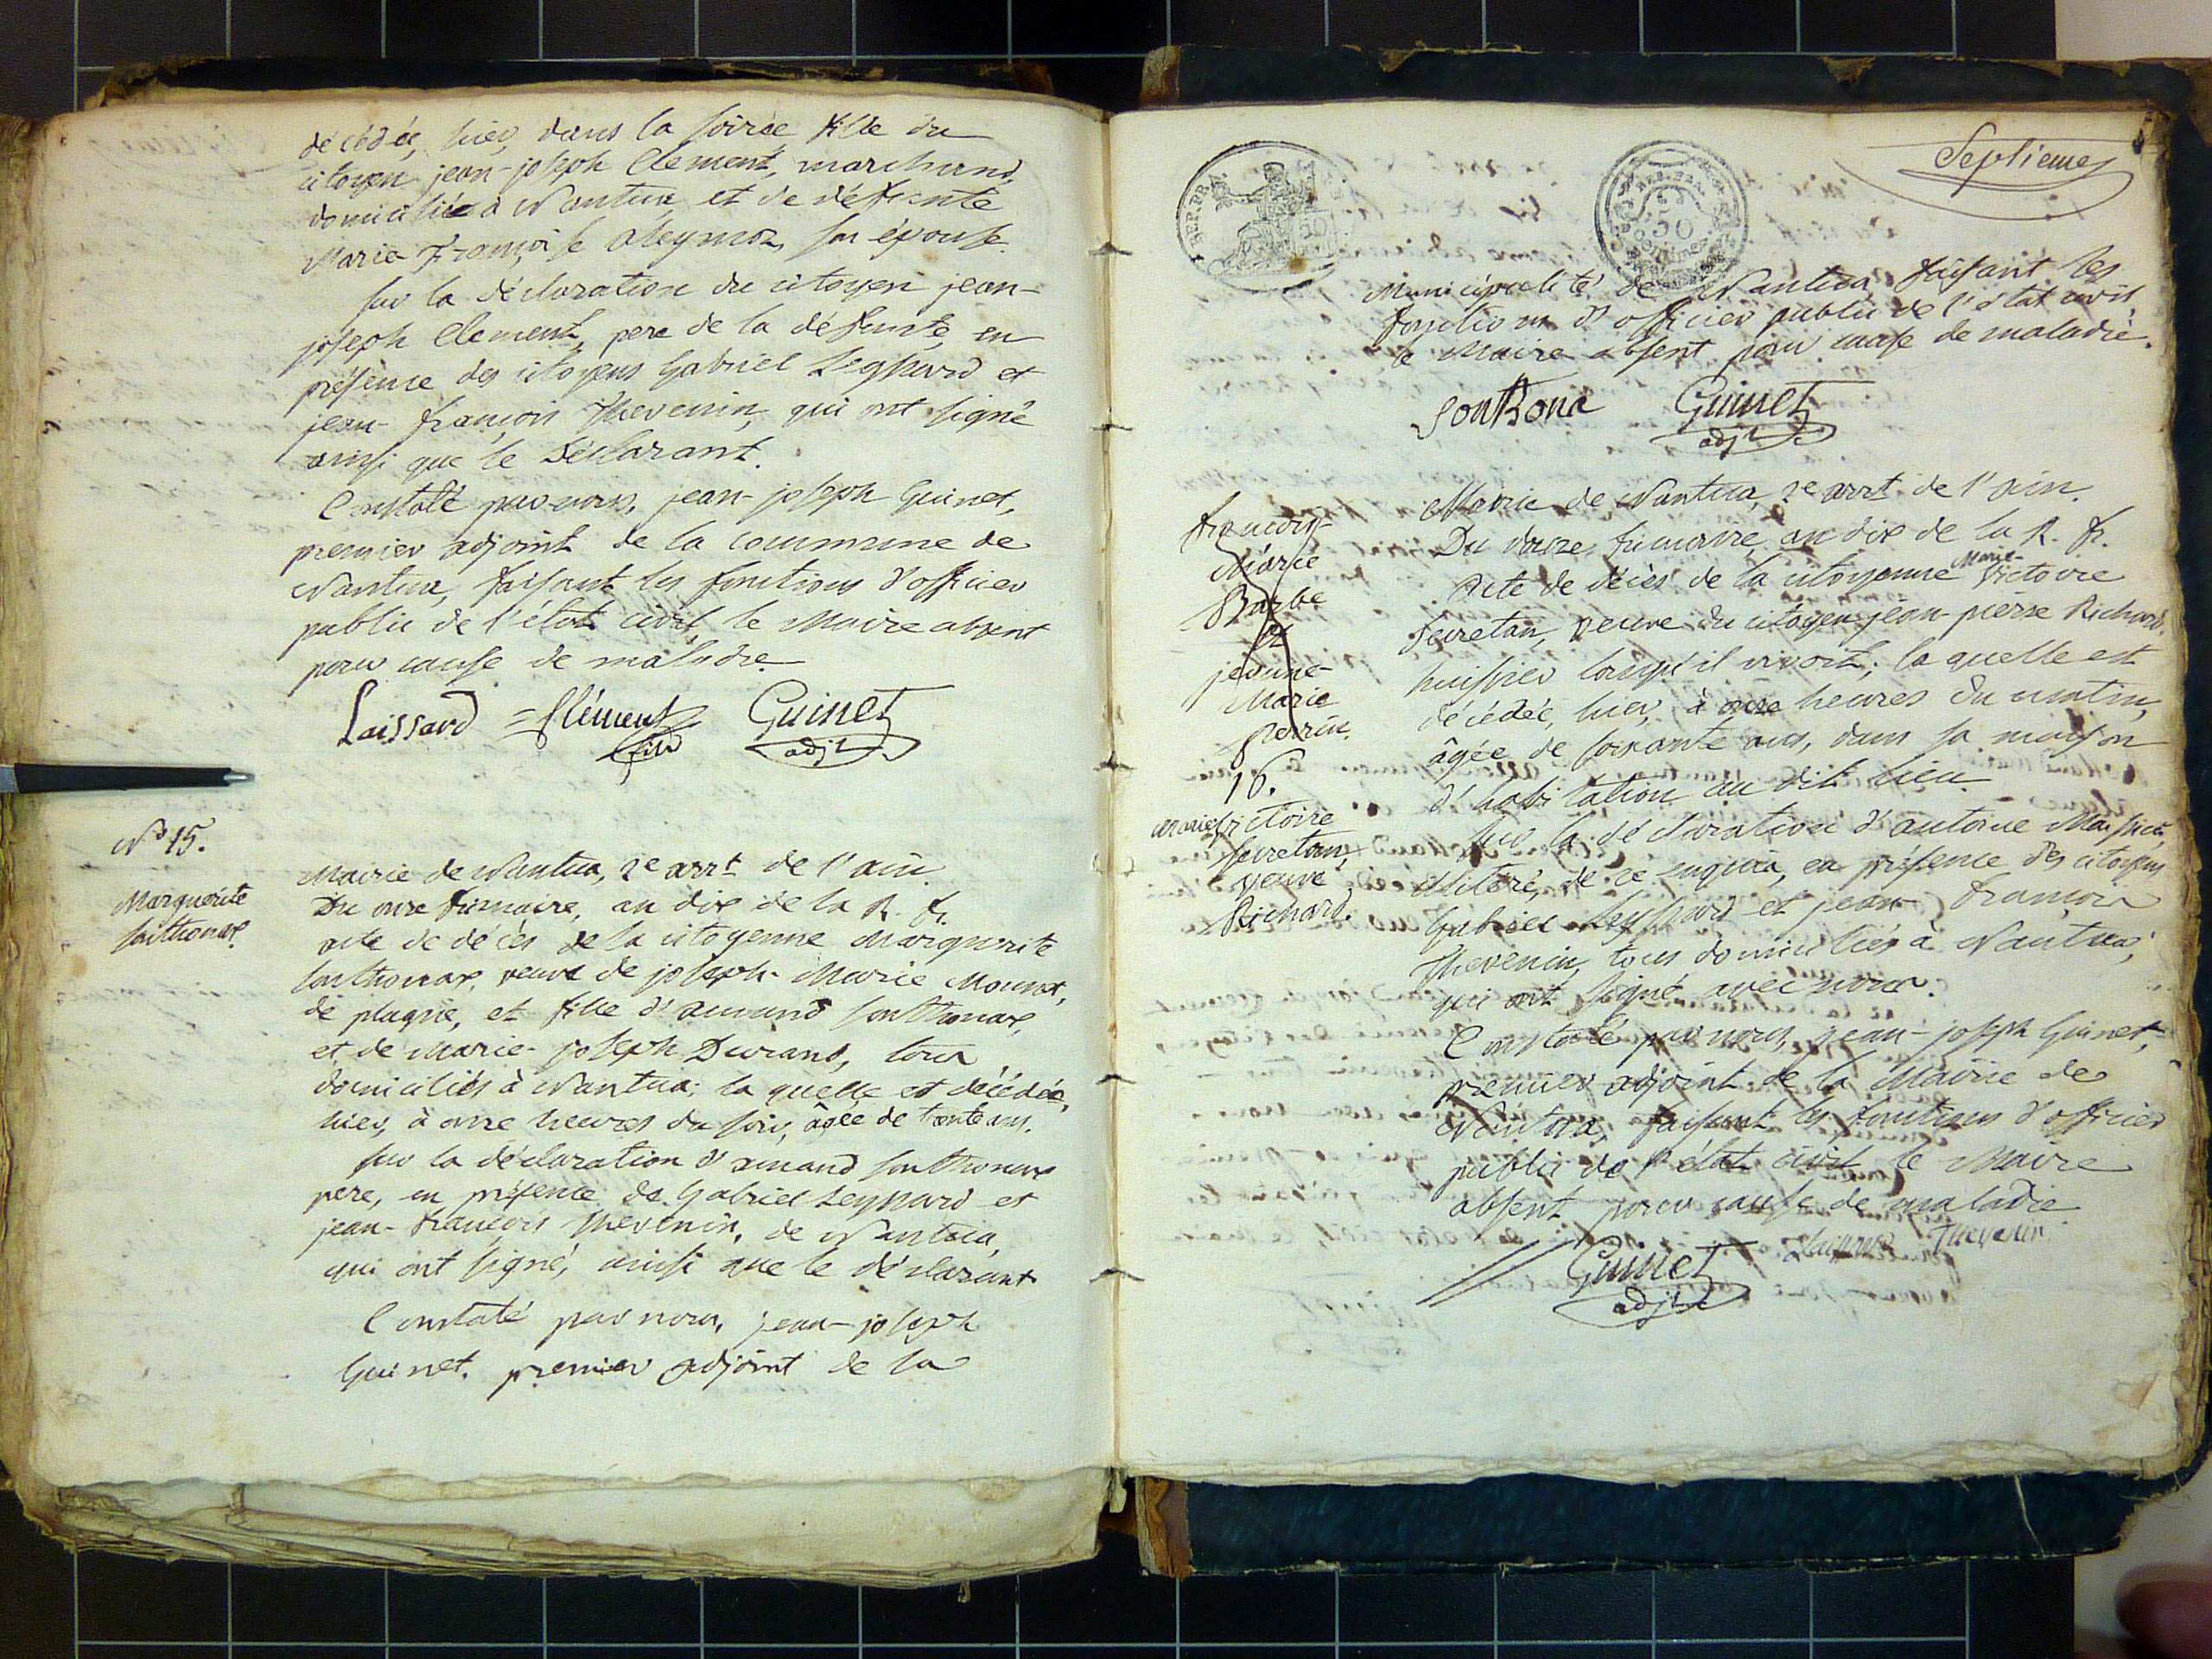 décédée, hier, dans la soirée fille du
citoyen jean-joseph Clement, marchand,
domicilié à Nantua et de défunte
Marie Françoise Aleymoz, son épouse.
sur la déclaration du citoyen jean-
joseph Clement, pere de la défunte, en
présence des citoyens Gabriel Leyssard et
jean-françois Thevenin, qui ont signé
ainsi que le déclarant.
Constaté par nous, jean-joseph Guinet,
premier adjoint de la commune de
Nantua, faisant les fonctions d'officier
public de l'état civil, le Maire absent
pour cause de maladie
Laissard = Clément Guinet
adjt
No 15.
Marguerite
Sonthonax
Mairie de Nantua, 2e arrt de l'ain.
Du onze frimaire, an dix de la R. fr.
acte de décès de la citoyenne Marguerite
Sonthonax, veuve de joseph-Marie Mounet,
de plagne, et fille d'amand Sonthonax,
et de Marie-joseph Durand, tous
domiciliés à Nantua; la quelle est décédée,
hier, à onze heures du soir, âgée de trente ans.
sur la déclaration d'amand Sonthonax
pere, en présence de Gabriel Leyssard et
jean-françois Thevenin, de Nantua,
qui ont signé, ainsi que le déclarant
Constaté par nous, jean-joseph
Guinet, premier adjoint de la
Septieme
REP. FRA.
REP. FRA.
50
Municipalité de Nantua faisant les
fonctions d'officier public de l'état civil
le Maire absent pour cause de maladie.
SontHona Guinet
adjt
françois
Marie
Barbe
et
jeanne-
Marie
perrin.
16.
Marie Victoire
Secretan,
veuve
Richard.
Mairie de Nantua, 2e arrt de l'ain.
Du douze frimaire, an dix de la R. fr.
Acte de décès de la citoyenne Marie-Victoire
Secretan, veuve du citoyen jean-pierre Richard,
huissier lorsqu'il vivoit; la quelle est
décédée, hier, à onze heures du matin,
âgée de soixante ans, dans sa maison
d'habitation au dit lieu.
Sur la déclaration d'antoine
illiteré, de ce enquis, en présence des citoyens
Gabriel Leyssard et jean-françois
Thevenin, tous domiciliés à Nantua,
qui ont signé avec nous.
Constaté par nous, jean-joseph Guinet,
premier adjoint de la Mairie de
Nantua, faisant les fonctions d'officier
public de l'état civil le Maire
absent pour cause de maladie
Laissard Thevenin
Guinet
adjt